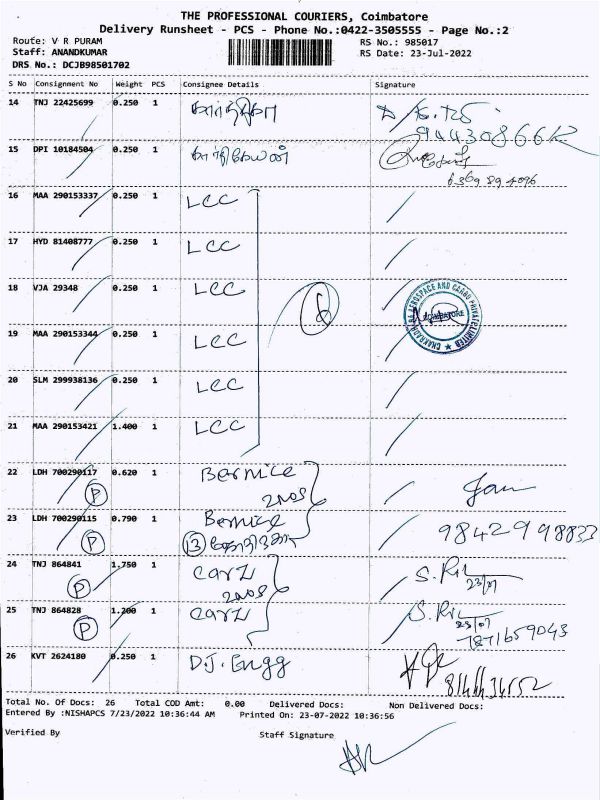 THE PROFESSIONAL COURIERS, Coimbatore
Delivery Runsheet - PCS - Phone No.:0422-3505555 - Page No.:2
Route: V R PURAM RS No.: 985017
Staff: ANANDKUMAR RS Date: 23-Jul-2022
DRS No.: DCJB98501702
S No Consignment No Weight PCS Consignee Details Signature
14 TNJ 22425699 0.250 1
15 DPI 10184504 0.250 1 கார்த்திகேயன்
16 MAA 290153337 0.250 1 LCC
17 HYD 81408777 0.250 1 LCC
18 VJA 29348 0.250 1 LCC
CHAKRADHARA AEROSPACE AND CARGO PRIVATE LIMITED
COIMBATORE
6
19 MAA 290153344 0.250 1 LCC
20 SLM 299938136 0.250 1 LCC
21 MAA 290153421 1.400 1 LCC
22 LDH 700290117 0.620 1 Bernice
P 2nos
23 LDH 700290115 0.790 1 Bernice 9842998833
P 13
24 TNJ 864841 1.750 1 Carz
P 2nos 23/07
25 TNJ 864828 1.200 1 Carz
P 23/07
7871659043
26 KVT 2624180 0.250 1 D.J. Engg
Total No. Of Docs: 26 Total COD Amt: 0.00 Delivered Docs: Non Delivered Docs:
Entered By :NISHAPCS 7/23/2022 10:36:44 AM Printed On: 23-07-2022 10:36:56
Verified By Staff Signature